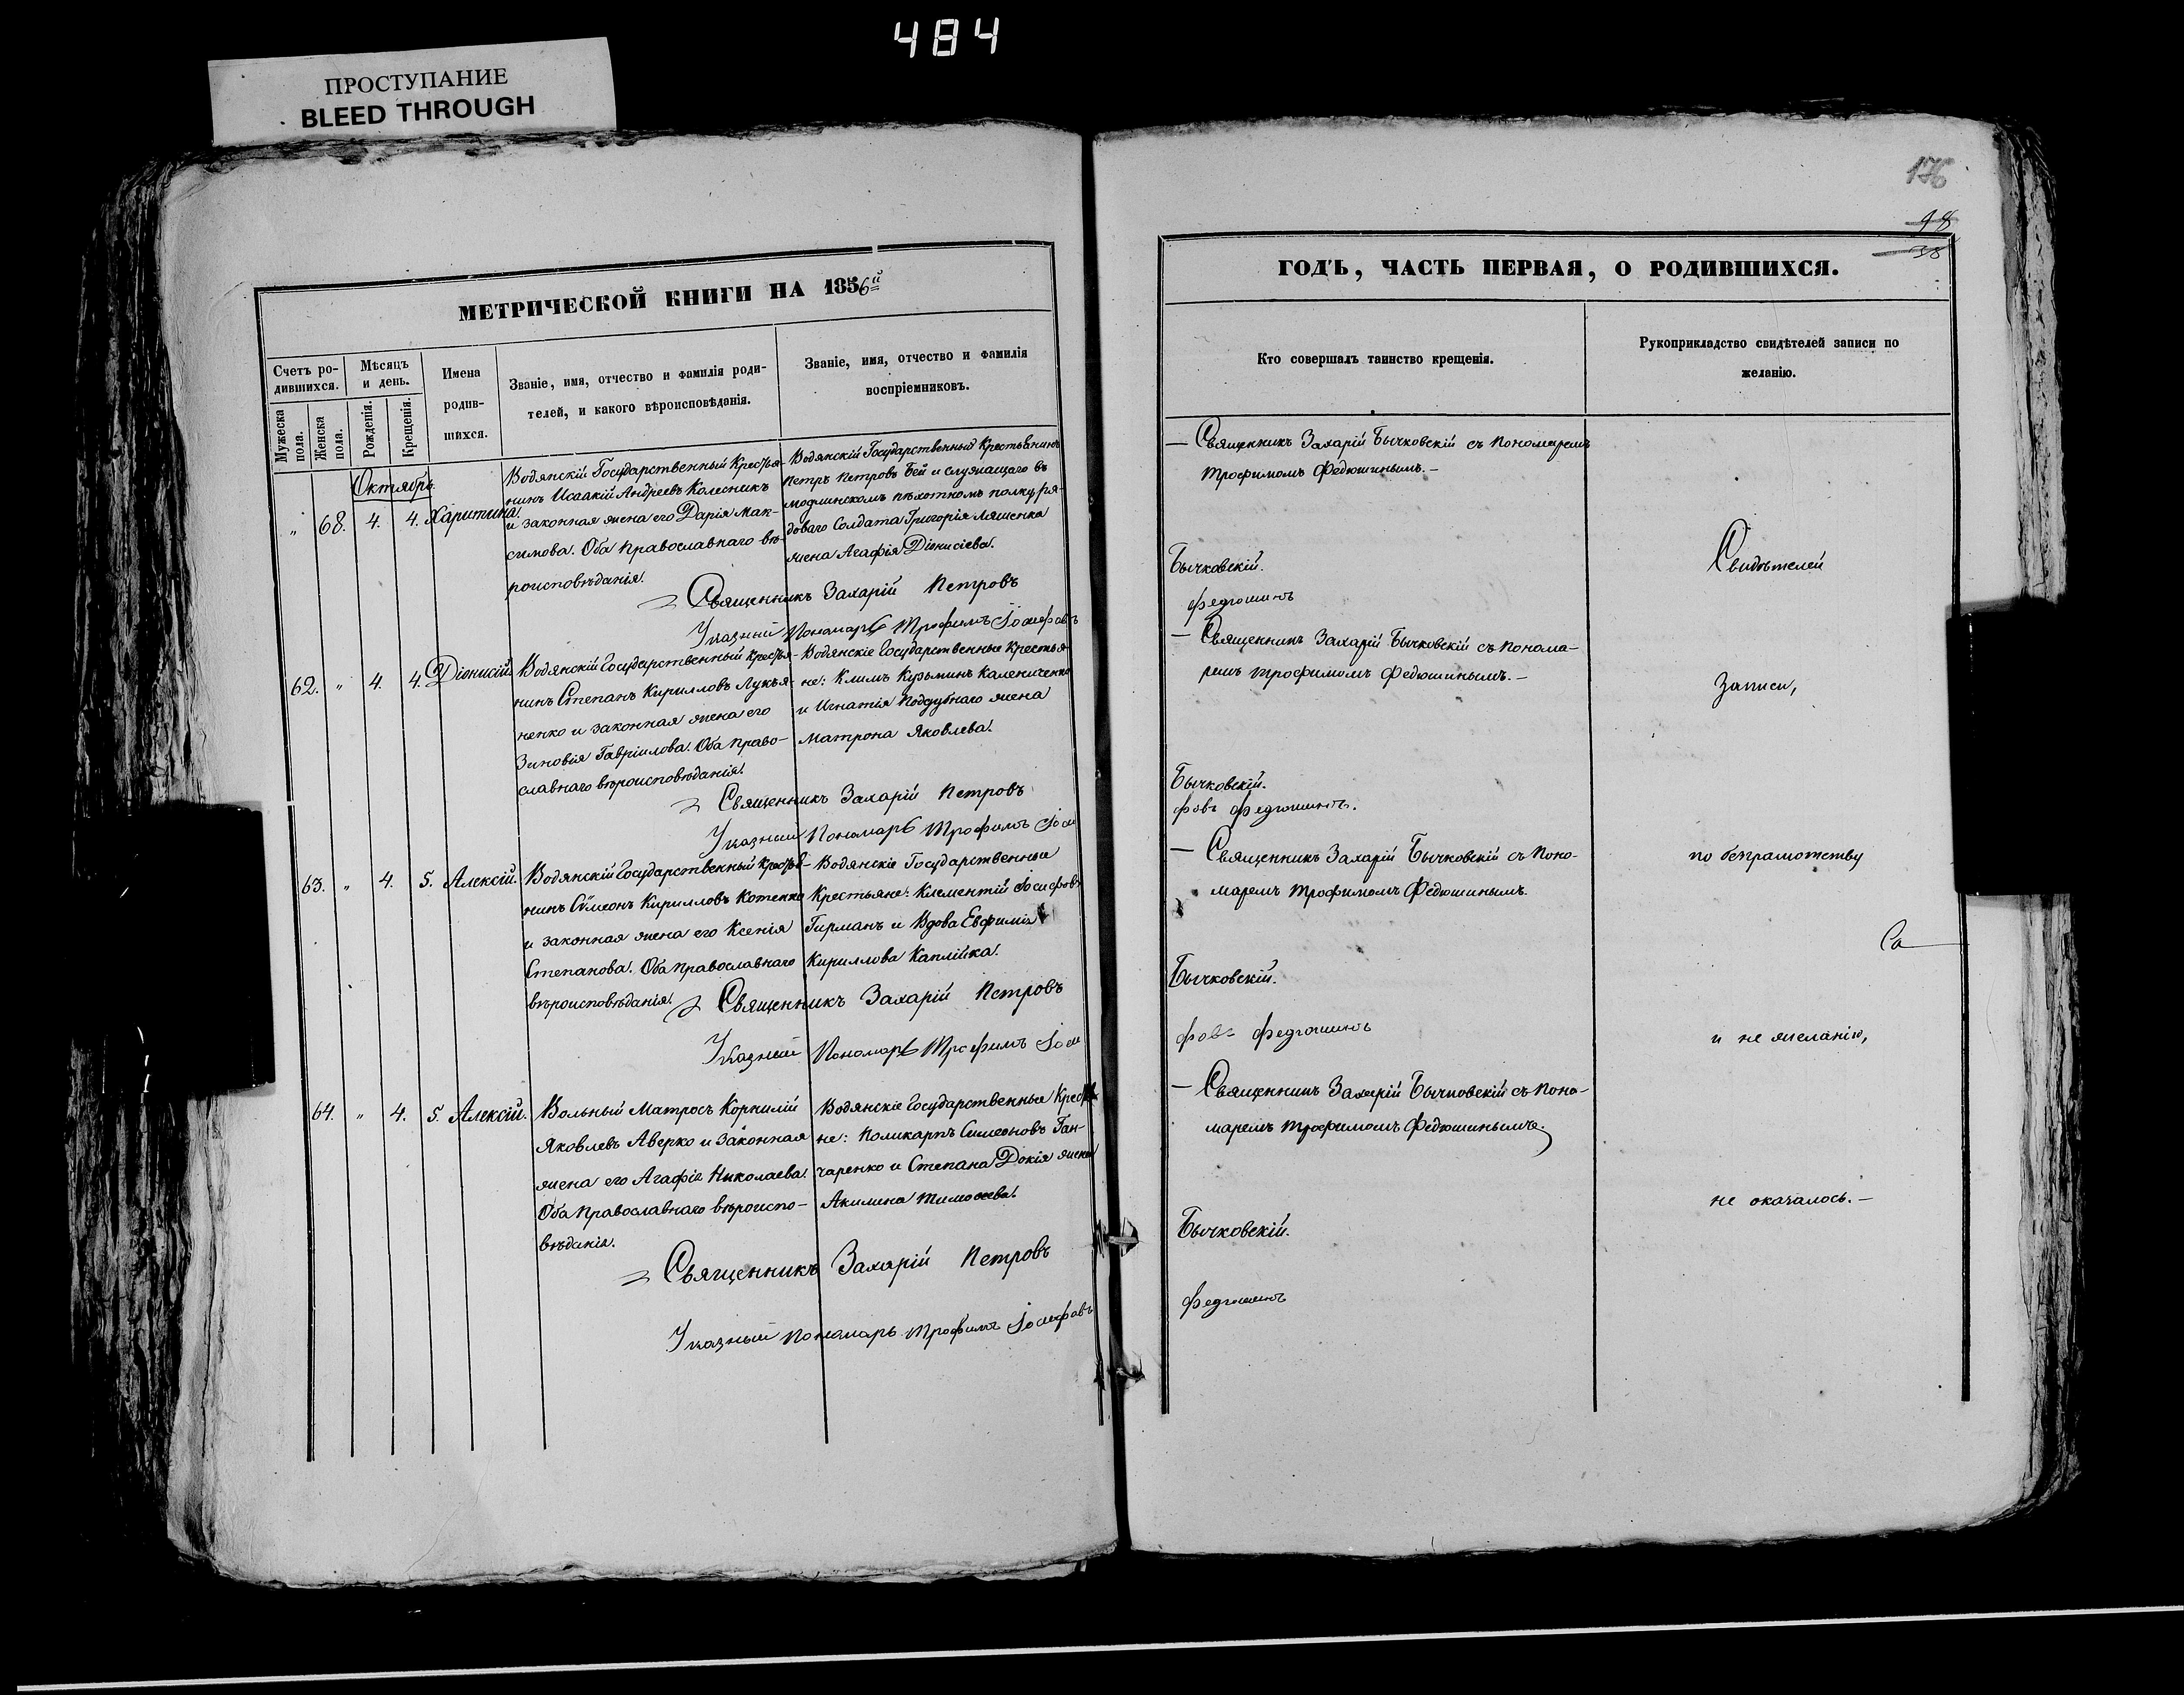 484
ПРОСТУПАНИЕ
BLEED THROUGH
176
98
38
МЕТРИЧЕСКОЙ КНИГИ НА 1856й
Счетъ родившихся.
Мѣсяцъ и день.
Имена родившихся.
Званіе, имя, отчество и фамилія роди-
телей, и какого вѣроисповѣданія.
Званіе, имя, отчество и фамилія
воспріемниковъ.
Мужеска пола.
Женска пола.
Рожденія.
Крещенія.
Октябрь
" 68. 4. 4. Харитина
Водянскій Государственный Крестья-
нинъ Исаакій Андреевъ Колесникъ
и законная жена его Дарія Мак-
симова. Оба Православнаго вѣ-
роисповѣданія.
Водянскій Государственный Крестьянинъ
Петръ Петровъ Бей и служащаго въ
Модлинскомъ пѣхотномъ полку ря-
доваго Солдата Григорія Ляшенка
жена Агафія Діонисіева.
Священникъ Захарій Петровъ
Указный Пономарь Трофимъ Іосифовъ
62. " 4. 4. Діонисій.
Водянскій Государственный Крестья-
нинъ Степанъ Кирилловъ Лукья-
ненко и законная жена его
Зиновія Гавріилова. Оба Право-
славнаго вѣроисповѣданія.
Водянскіе Государственные Крестья-
не: Климъ Кузьминъ Калениченко
и Игнатія Поддубнаго жена
Матрона Яковлева.
Священникъ Захарій Петровъ
Указный Пономарь Трофимъ Іоси
63. " 4. 5. Алексій.
Водянскій Государственный Крестья-
нинъ Сѵмеонъ Кирилловъ Котенко
и законная жена его Ксенія
Степанова. Оба Православнаго
вѣроисповѣданія.
Водянскіе Государственные
Крестьяне: Климентій Іосифовъ
Гирманъ и Вдова Евфимія
Кириллова Каплійка.
Священникъ Захарій Петровъ
Указный Пономарь Трофимъ Іоси
64. " 4. 5. Алексій.
Вольный Матросъ Корнилій
Яковлевъ Аверко и Законная
жена его Агафія Николаева.
Оба Православнаго вѣроиспо-
вѣданія.
Водянскіе Государственные Крестья
не: Поликарпъ Симеоновъ Ган-
чаренко и Степана Докія жена
Акилина Тимоѳеева.
Священникъ Захарій Петровъ
Указный Пономарь Трофимъ Іосифовъ
ГОДЪ, ЧАСТЬ ПЕРВАЯ, О РОДИВШИХСЯ.
Кто совершалъ таинство крещенія.
Рукоприкладство свидѣтелей записи по
желанію.
— Священникъ Захарій Бычковскій съ Пономаремъ
Трофимомъ Федюшинымъ. —
Бычковскій.
Федюшинъ
Свидѣтелей
— Священникъ Захарій Бычковскій съ Понома-
ремъ Трофимомъ Федюшинымъ. —
Записи,
Бычковскій.
фовъ Федюшинъ.
— Священникъ Захарій Бычковскій съ Поно-
маремъ Трофимомъ Федюшинымъ.
по безграмотству
Са
Бычковскій.
фовъ Федюшинъ
и не желанію,
— Священникъ Захарій Бычковскій съ Поно-
маремъ Трофимомъ Федюшинымъ.
не оказалось. —
Бычковскій.
Федюшинъ